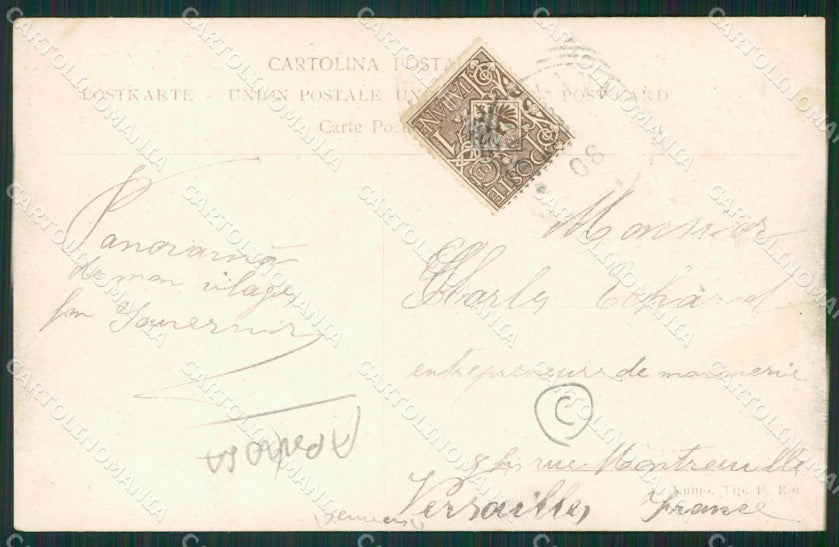 CARTOLINA POSTA
POSTKARTE - UNION POSTALE UN POST CARD
Carte Posta
POSTE ITALIANE
1
08
Panorama
de mon vilage
bon Souvernir
Monsieur
Charles
entrepreneur de maconnerie
8 bis rue Montreuille
Versailles France
C
Luino, Tip. F. Ro
CARTOLINOMANIA